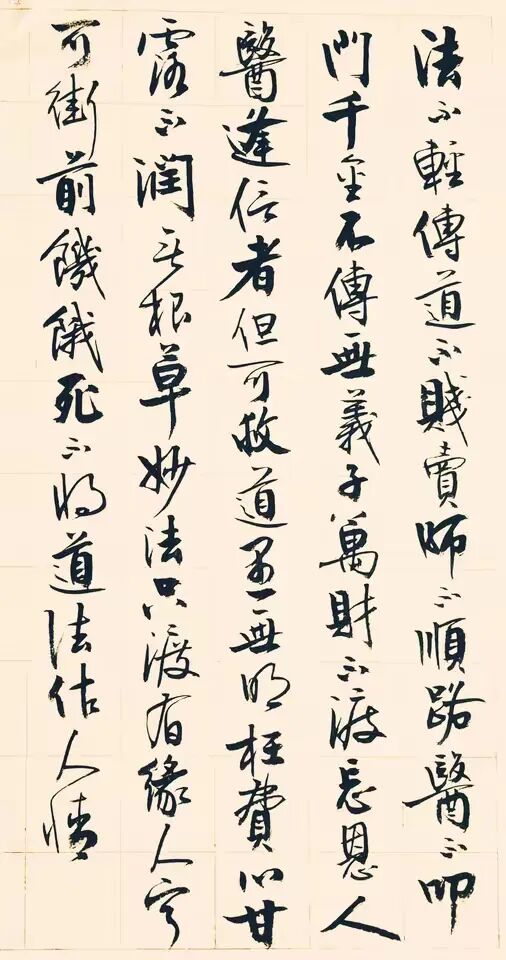 法不輕傳道不賤賣師不順路醫不叩
門千金不傳無義子萬財不渡忘恩人
醫逢信者但可救道遇無明枉費心甘
露不潤無根草妙法只渡有緣人寧
可街前饑餓死不將道法估人情